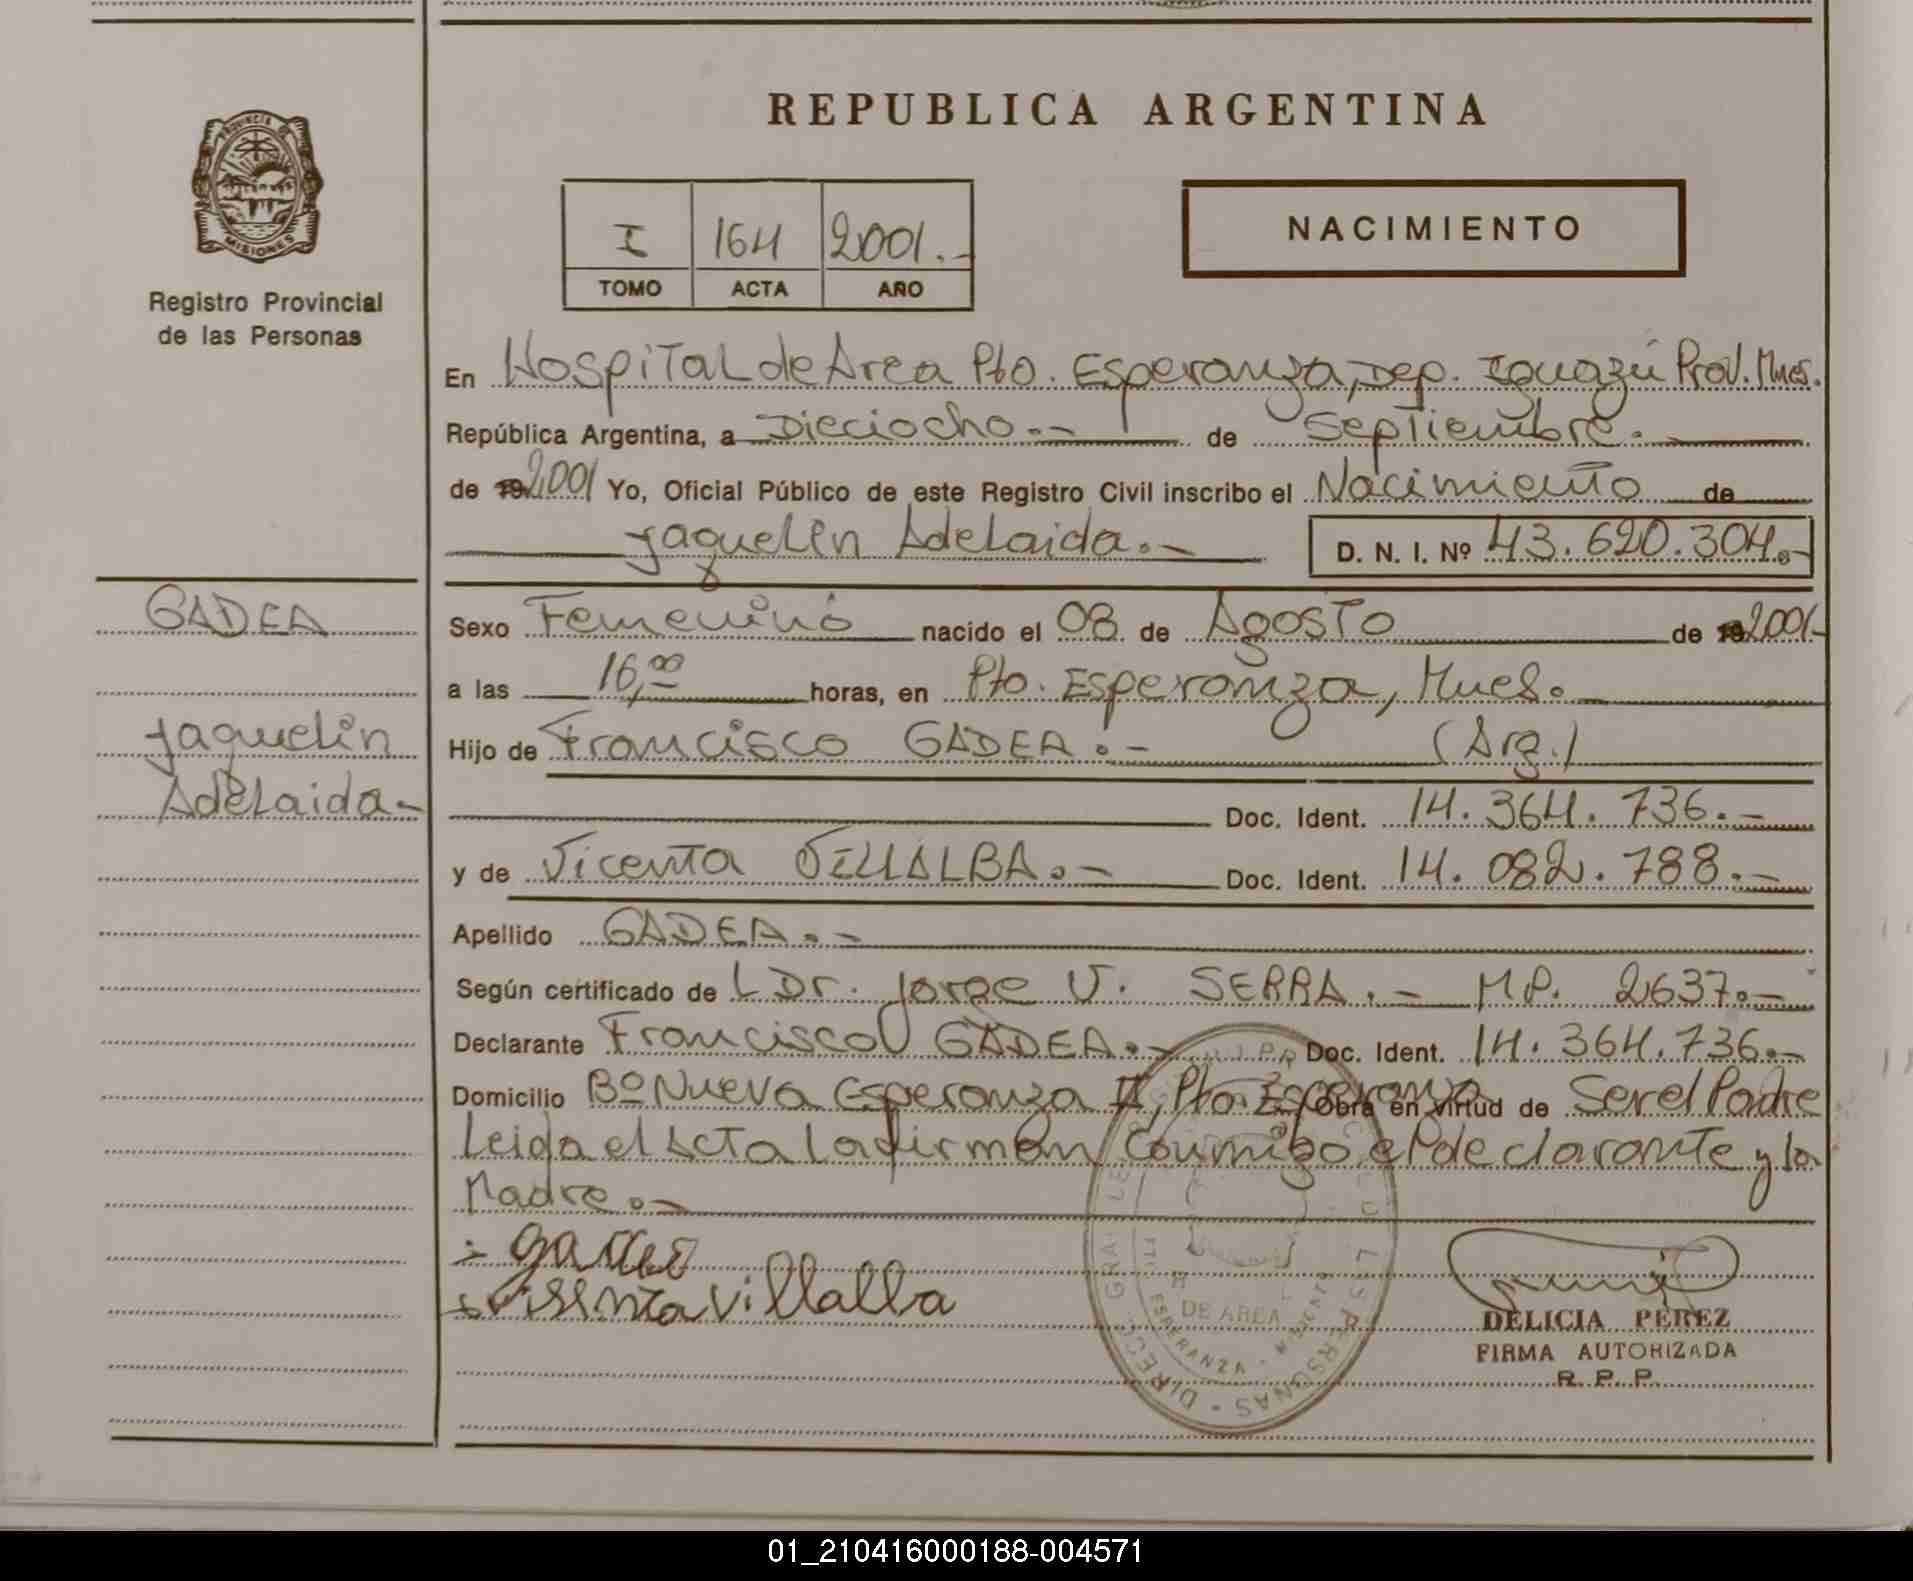 REPUBLICA ARGENTINA
PROVINCIA DE
MISIONES
Registro Provincial
de las Personas
I 164 2001.-
TOMO ACTA AÑO
NACIMIENTO
En Hospital de Area Pto. Esperanza, Dep. Iguazú Prov. Mnes.
República Argentina, a Dieciocho.- de Septiembre.
de 19 2001 Yo, Oficial Público de este Registro Civil inscribo el Nacimiento de
Jaquelin Adelaida.- D. N. I. Nº 43.620.304.-
GADEA
Jaquelin
Adelaida.-
Sexo Femenino nacido el 08 de Agosto de 19 2001.-
a las 16,00 horas, en Pto. Esperanza, Mnes.
Hijo de Francisco GADEA.- (Arg.)
Doc. Ident. 14.364.736.-
y de Vicenta VILLALBA.- Doc. Ident. 14.082.788.-
Apellido GADEA.-
Según certificado de L Dr. Jorge V. SERRA.- M.P. 2637.-
Declarante Francisco GADEA.- Doc. Ident. 14.364.736.-
Domicilio Bº Nueva Esperanza II, Pto Esperanza Obra en virtud de Ser el Padre
Leida el Acta la firman conmigo el declarante y la
Madre.-
villalla
DE AREA
ESPERANZA
PERSONAS
DELICIA PEREZ
FIRMA AUTORIZADA
R. P. P.
01_210416000188-004571